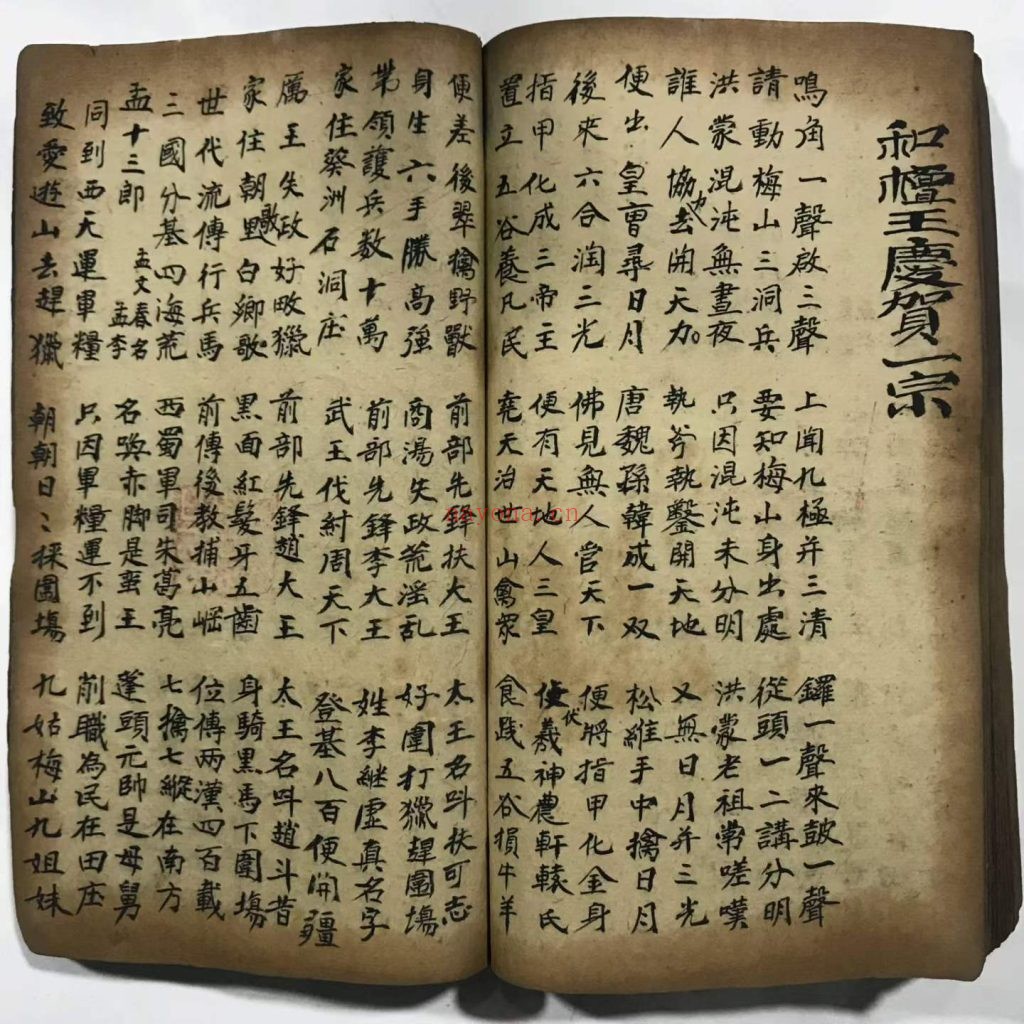 和檀王慶賀一宗
鳴角一聲啟三聲 上聞九極并三清 鑼一聲來皷一聲
請動梅山三洞兵 要知梅山身出處 從頭一二講分明
洪蒙混沌無晝夜 只因混沌未分明 洪蒙老祖常嗟嘆
誰人協力去開天加 執斧執鑿開天地 又無日月并三光
便出皇曺尋日月 唐魏孫韓成一双 松維手中擒日月
後來六合润三光 佛見無人官天下 便將指甲化金身
指甲化成三帝主 便有天地人三皇 便伏羲神農軒轅氏
置立五谷養凡民 堯天治世山禽眾 食践五谷損牛羊
便差後翠擒野獸 前部先鋒扶大王 太王名呌扶可志
身生六手勝高強 商湯失政荒淫乱 好圍打獵趕圍塲
带領護兵数十萬 前部先鋒李大王 姓李継虚真名字
家住葵洲石洞庄 武王伐紂周天下 登基八百便開疆
厲王失政好畋獵 前部先鋒趙大王 太王名呌趙斗昔
家住朝歌里白卿歌 黑面紅髮牙五齒 身騎黑馬下圍塲
世代流傳行兵馬 前傳後教捕山崛 位傳两漢四百載
三國分基四海荒 西蜀軍司朱葛亮 七擒七縱在南方
孟十三郎 孟文春名孟李 名喚赤脚是蛮王 蓬頭元帥是母舅
同到西天運軍糧 只因軍糧運不到 削職為民在田庄
致愛遊山去趕獵 朝朝日〻採圍塲 九姑梅山九姐妹